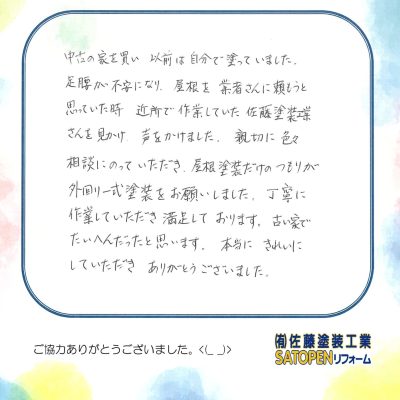 中古の家を買い 以前は自分で塗っていました。
足腰が不安になり、屋根を 業者さんに頼もうと
思っていた時 近所で作業していた 佐藤塗装工業
さんを見かけ 声をかけました。 親切に 色々
相談にのっていただき、屋根塗装だけのつもりが
外回り一式塗装をお願いしました。丁寧に
作業していただき 満足しております。古い家で
たいへんだったと思います。 本当に きれいに
していただき ありがとうございました。
ご協力ありがとうございました。<(_ _)>
㈲佐藤塗装工業
SATOPENリフォーム